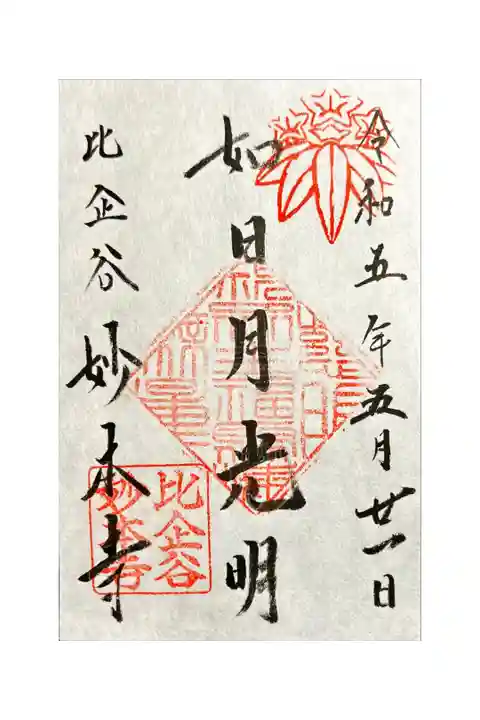 令和五年五月廿一日
如日月光明
比企谷妙本寺
比企谷
妙本寺